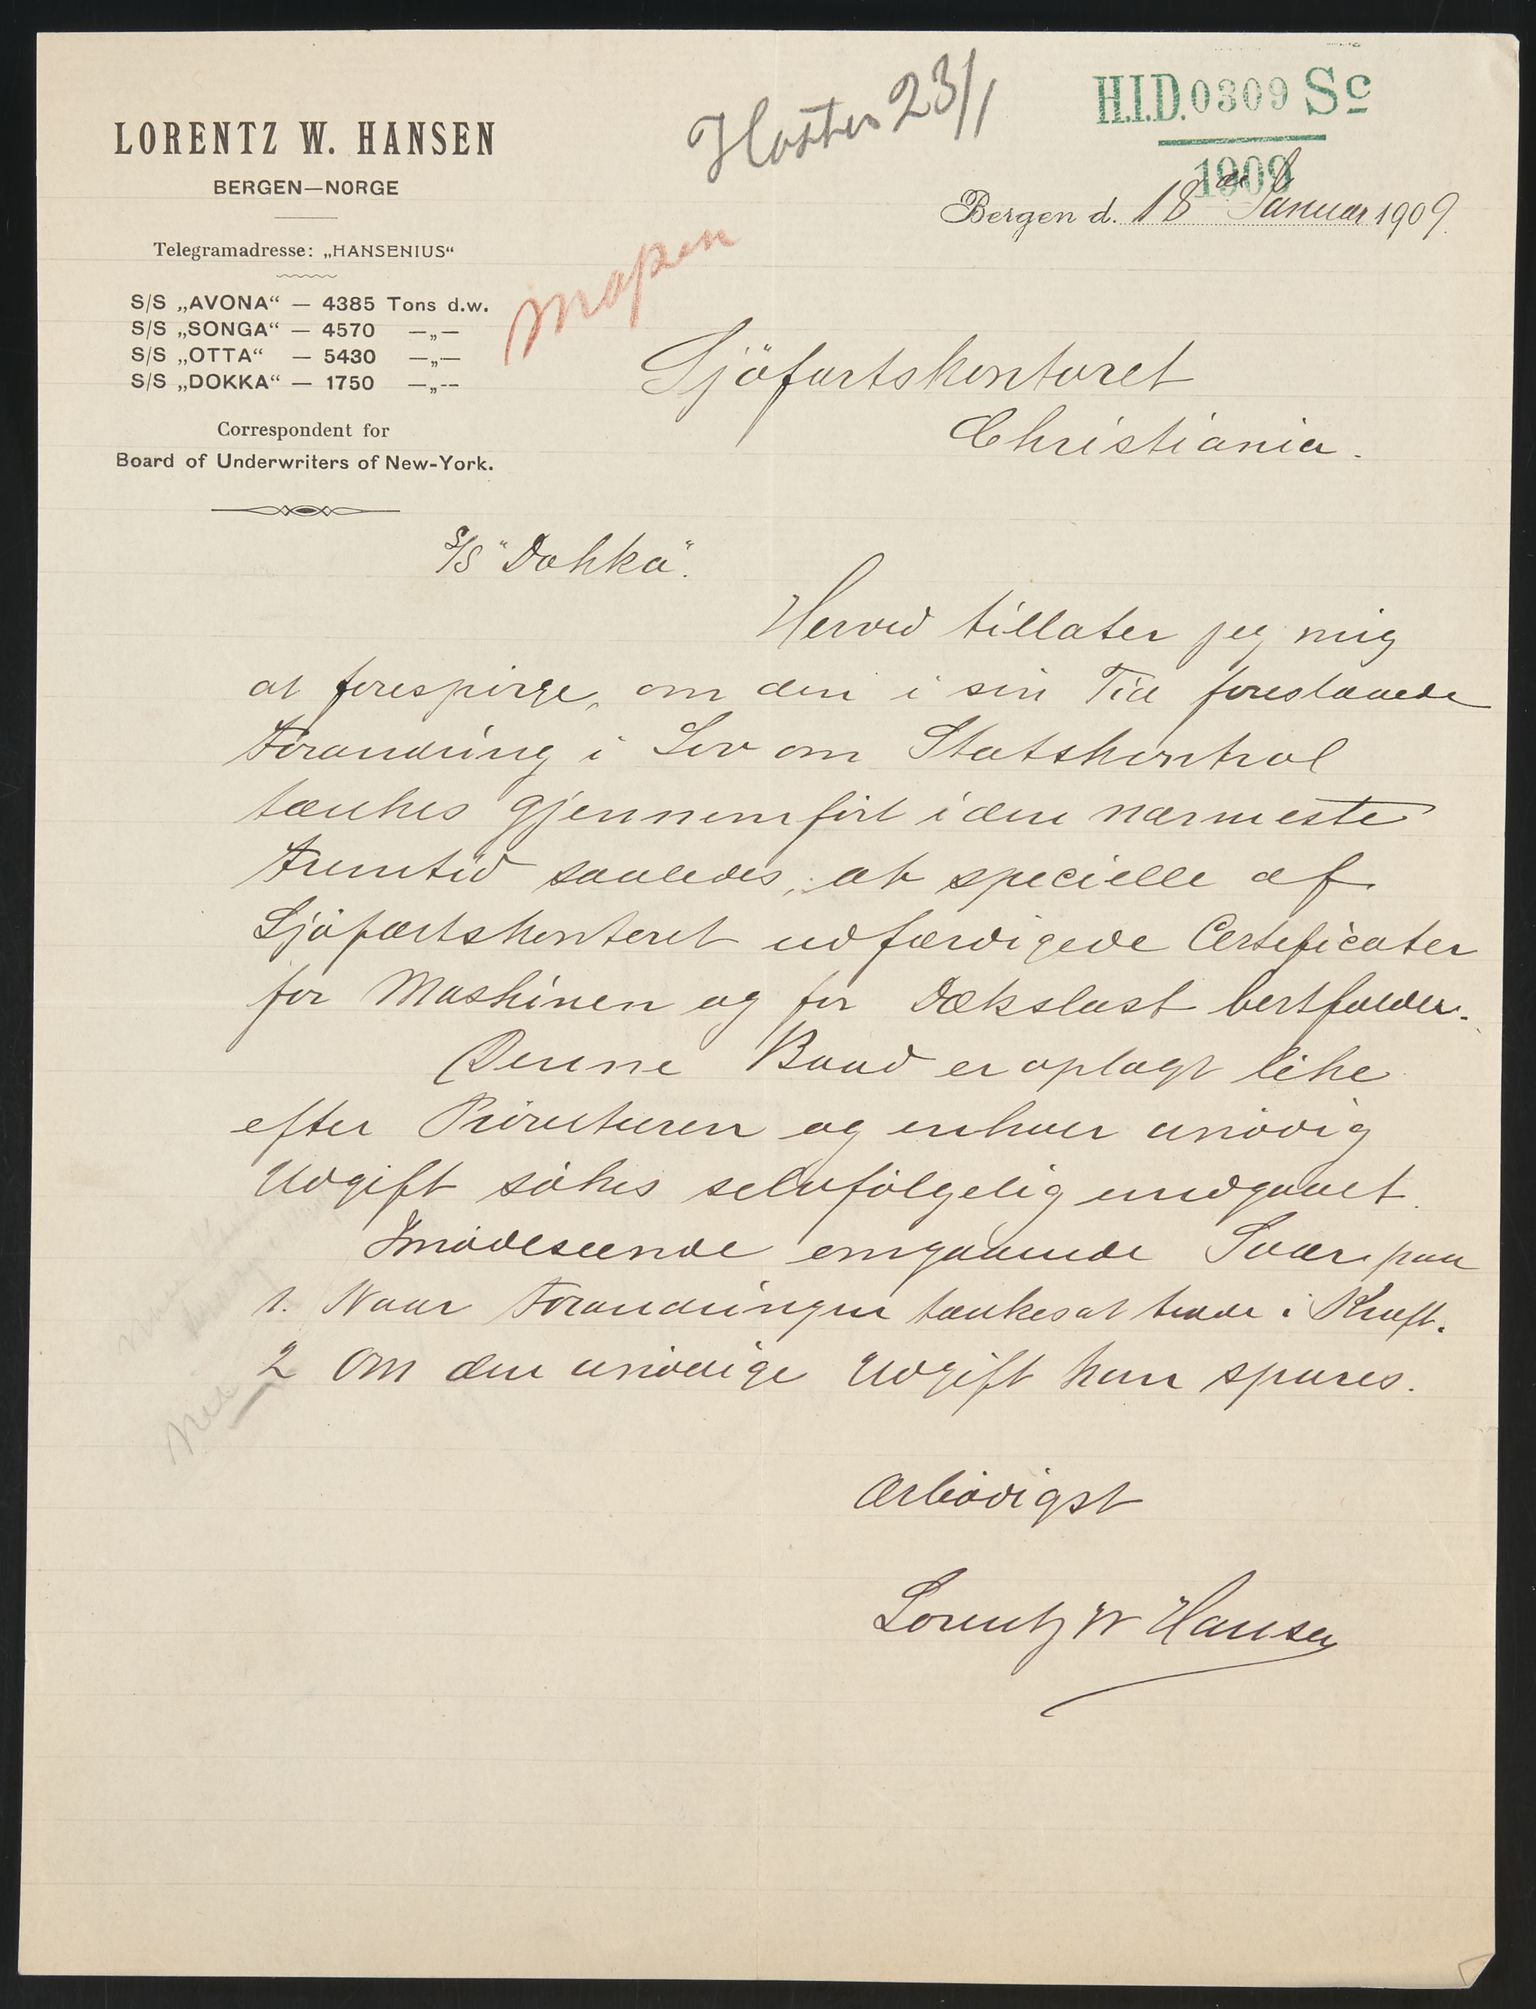 LORENTZ W. HANSEN
BERGEN—NORGE
Telegramadresse: „HANSENIUS“
S/S „AVONA“ — 4385 Tons d.w.
S/S „SONGA“ — 4570 —„—
S/S „OTTA“ — 5430 —„—
S/S „DOKKA“ — 1750 —„--
Correspondent for
Board of Underwriters of New-York.
Haster 23/1
H.I.D. 0309 Sc
1909
Mapen
Bergen d. 18de Januar 1909.
Sjöfartskontoret
Christiania.
S/S "Dokka".
Herved tillater jeg mig
at forespörge, om den i sin Tid foreslaaede
Forandring i Lov om Statskontrol
tænkes gjennemfört i den nærmeste
Fremtid saaledes, at specielle af
Sjöfartskontoret udfærdigede Certeficater
for Maskinen og for Dækslast bortfalder.
Denne Baad er oplagt like
efter Pröveturen og enhver unödig
Udgift sökes selvfölgelig undgaaet.
Imödeseende omgaaende Svar paa
1. Naar Forandringen tænkes at træde i Kraft.
2 Om den unödige Udgift kan spares.
Ærbödigst
Lorentz W Hansen